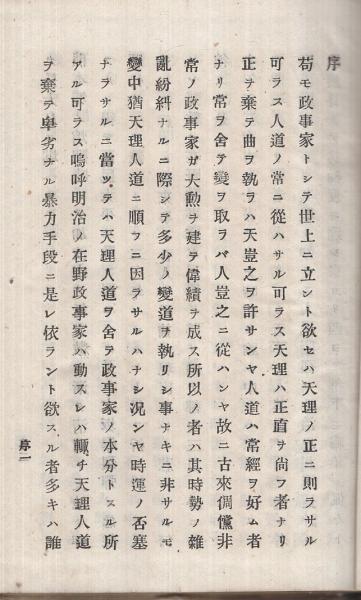 序
苟モ政事家トシテ世上ニ立ント欲セハ天理ノ正ニ則ラサル
可ラス人道ノ常ニ從ハサル可ラス天理ハ正直ヲ尚フ者ナリ
正ヲ棄テ曲ヲ執ラハ天豈之ヲ許サンヤ人道ハ常經ヲ好ム者
ナリ常ヲ舍テ變ヲ取ラバ人豈之ニ從ハンヤ故ニ古來倜儻非
常ノ政事家ガ大勲ヲ建テ偉績ヲ成ス所以ノ者ハ其時勢ノ雜
亂紛糾ナルニ際シテ多少ノ變道ヲ執リシ事ナキニ非サルモ
變中猶天理人道ニ順フニ因ラサルハナシ況ンヤ時運ノ否塞
ナラサルニ當ツテハ天理人道ヲ舍テ政事家ノ本分トスル所
アル可ラス嗚呼明治ノ在野政事家ハ動スレハ輙チ天理人道
ヲ棄テ卑劣ナル暴力手段ニ是レ依ラント欲スル者多キハ誰
序一